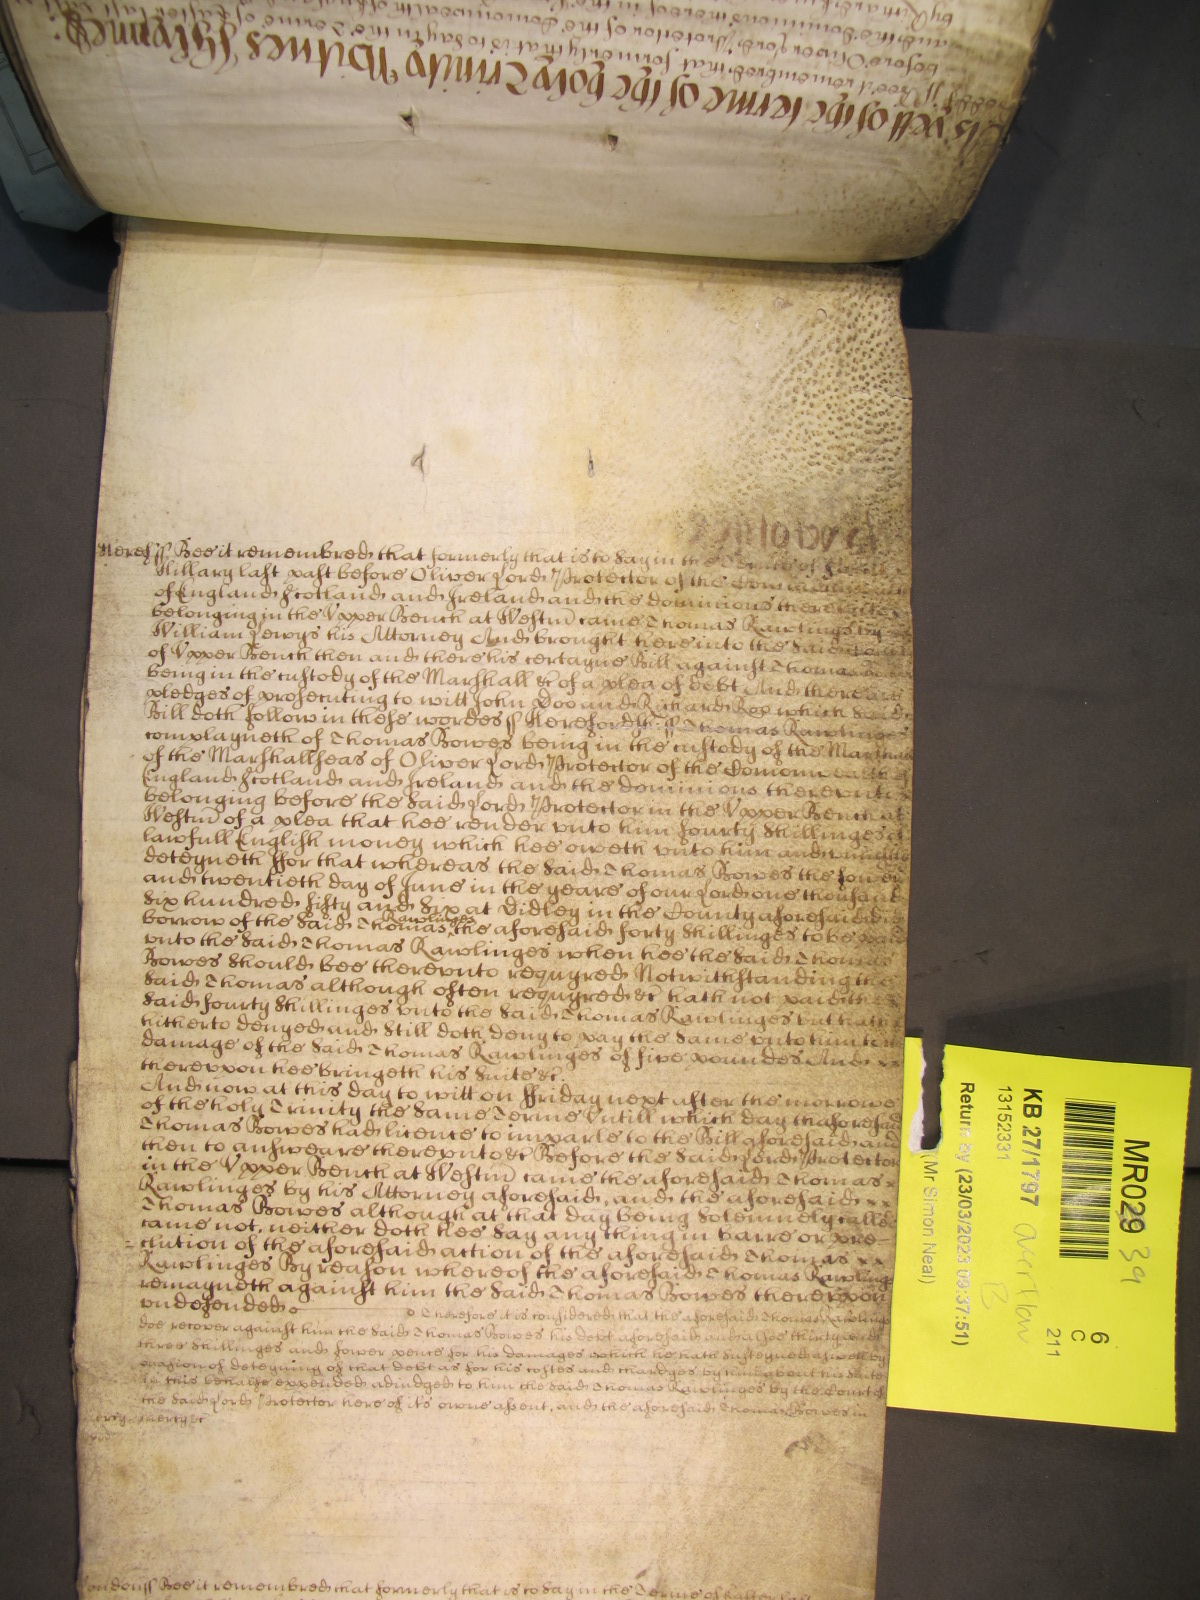 As yett of the terme of the holy Trinity Witnes Glynne
Bee it remembred that formerly that is to say in the Terme of Easter last past
before Oliver Lord Protector of the Comonwealth of England
and the Dominions thereof in the
by Richard
Heref ss Bee it remembred that formerly that is to say in the Terme of Saint
Hillary last past before Oliver Lord Protector of the Comonwealth
of England Scotland and Ireland and the dominions thereunto
belonging in the Upper Bench at Westm came Thomas Rawlinges by
William Lewys his Attorney And brought here into the said Court
of Upper Bench then and there his certayne Bill against Thomas Bowes
being in the custody of the Marshall &c of a plea of debt And there are
pledges of prosecuting to witt John Doo and Richard Roo which said
Bill doth follow in these wordes ss Herefordsh ss Thomas Rawlinges
complayneth of Thomas Bowes being in the custody of the Marshall
of the Marshallseas of Oliver Lord Protector of the Comonwealth of
England Scotland and Ireland and the dominions thereunto
belonging before the said Lord Protector in the Upper Bench at
Westm of a plea that hee render unto him fourty shillinges of
lawfull English money which hee oweth unto him and uniustly
deteyneth ffor that whereas the said Thomas Bowes the fower
and twentieth day of June in the yeare of our Lord one thousand
six hundred fifty and six at Didley in the County aforesaid did
borrow of the said Thomas Rawlinges the aforesaid forty shillinges to be paid
unto the said Thomas Rawlinges when hee the said Thomas
Bowes should bee thereunto requyred Notwithstanding the
said Thomas although often requyred &c hath not paid the
said fourty shillinges unto the said Thomas Rawlinges but hath
hitherto denyed and still doth deny to pay the same unto him to the
damage of the said Thomas Rawlinges of five poundes And
thereupon hee bringeth his suite &c.
And now at this day to witt on ffriday next after the morrowe
of the holy Trinity the same Terme Untill which day thaforesaid
Thomas Bowes had licence to imparle to the Bill aforesaid and
then to answeare thereunto &c Before the said Lord Protector
in the Upper Bench at Westm came the aforesaid Thomas
Rawlinges by his Attorney aforesaid, and the aforesaid
Thomas Bowes although at that day being solemnely called
came not, neither doth hee say any thing in barre or pre-
=clution of the aforesaid action of the aforesaid Thomas
Rawlinges By reason whereof the aforesaid Thomas Rawlinges
remayneth against him the said Thomas Bowes thereupon
undefended Therefore it is considered that the aforesaid Thomas Rawlinges
doe recover against him the said Thomas Bowes his debt aforesaid and alsoe thirty and
three shillinges and fower pence for his damages which he hath susteyned aswell by
occasion of deteyning of that debt as for his costes and chardges by him about his suite
in this behalfe expended adiudged to him the said Thomas Rawlinges by the Court of
the said Lord Protector here of its owne assent, and the aforesaid Thomas Bowes in
mercy &c
London ss Bee it remembred that formerly that is to say in the Terme of Easter last
MR029 39
6
C
211
KB 27/1797 overflow
B
13152331
Return by (23/03/2023 09:37:51)
(Mr Simon Neal)